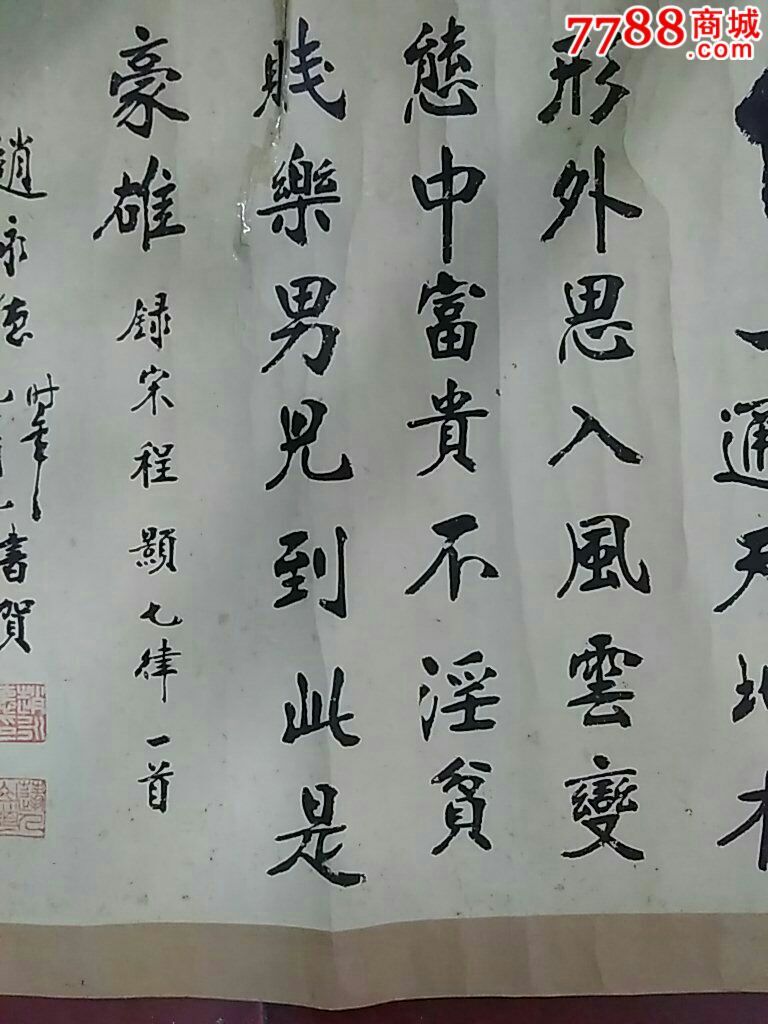 7788商城
.com
通天地
形外思入風雲變
態中富貴不淫貧
賤樂男兒到此是
豪雄
録宋程顥七律一首
时年
趙永德
書賀